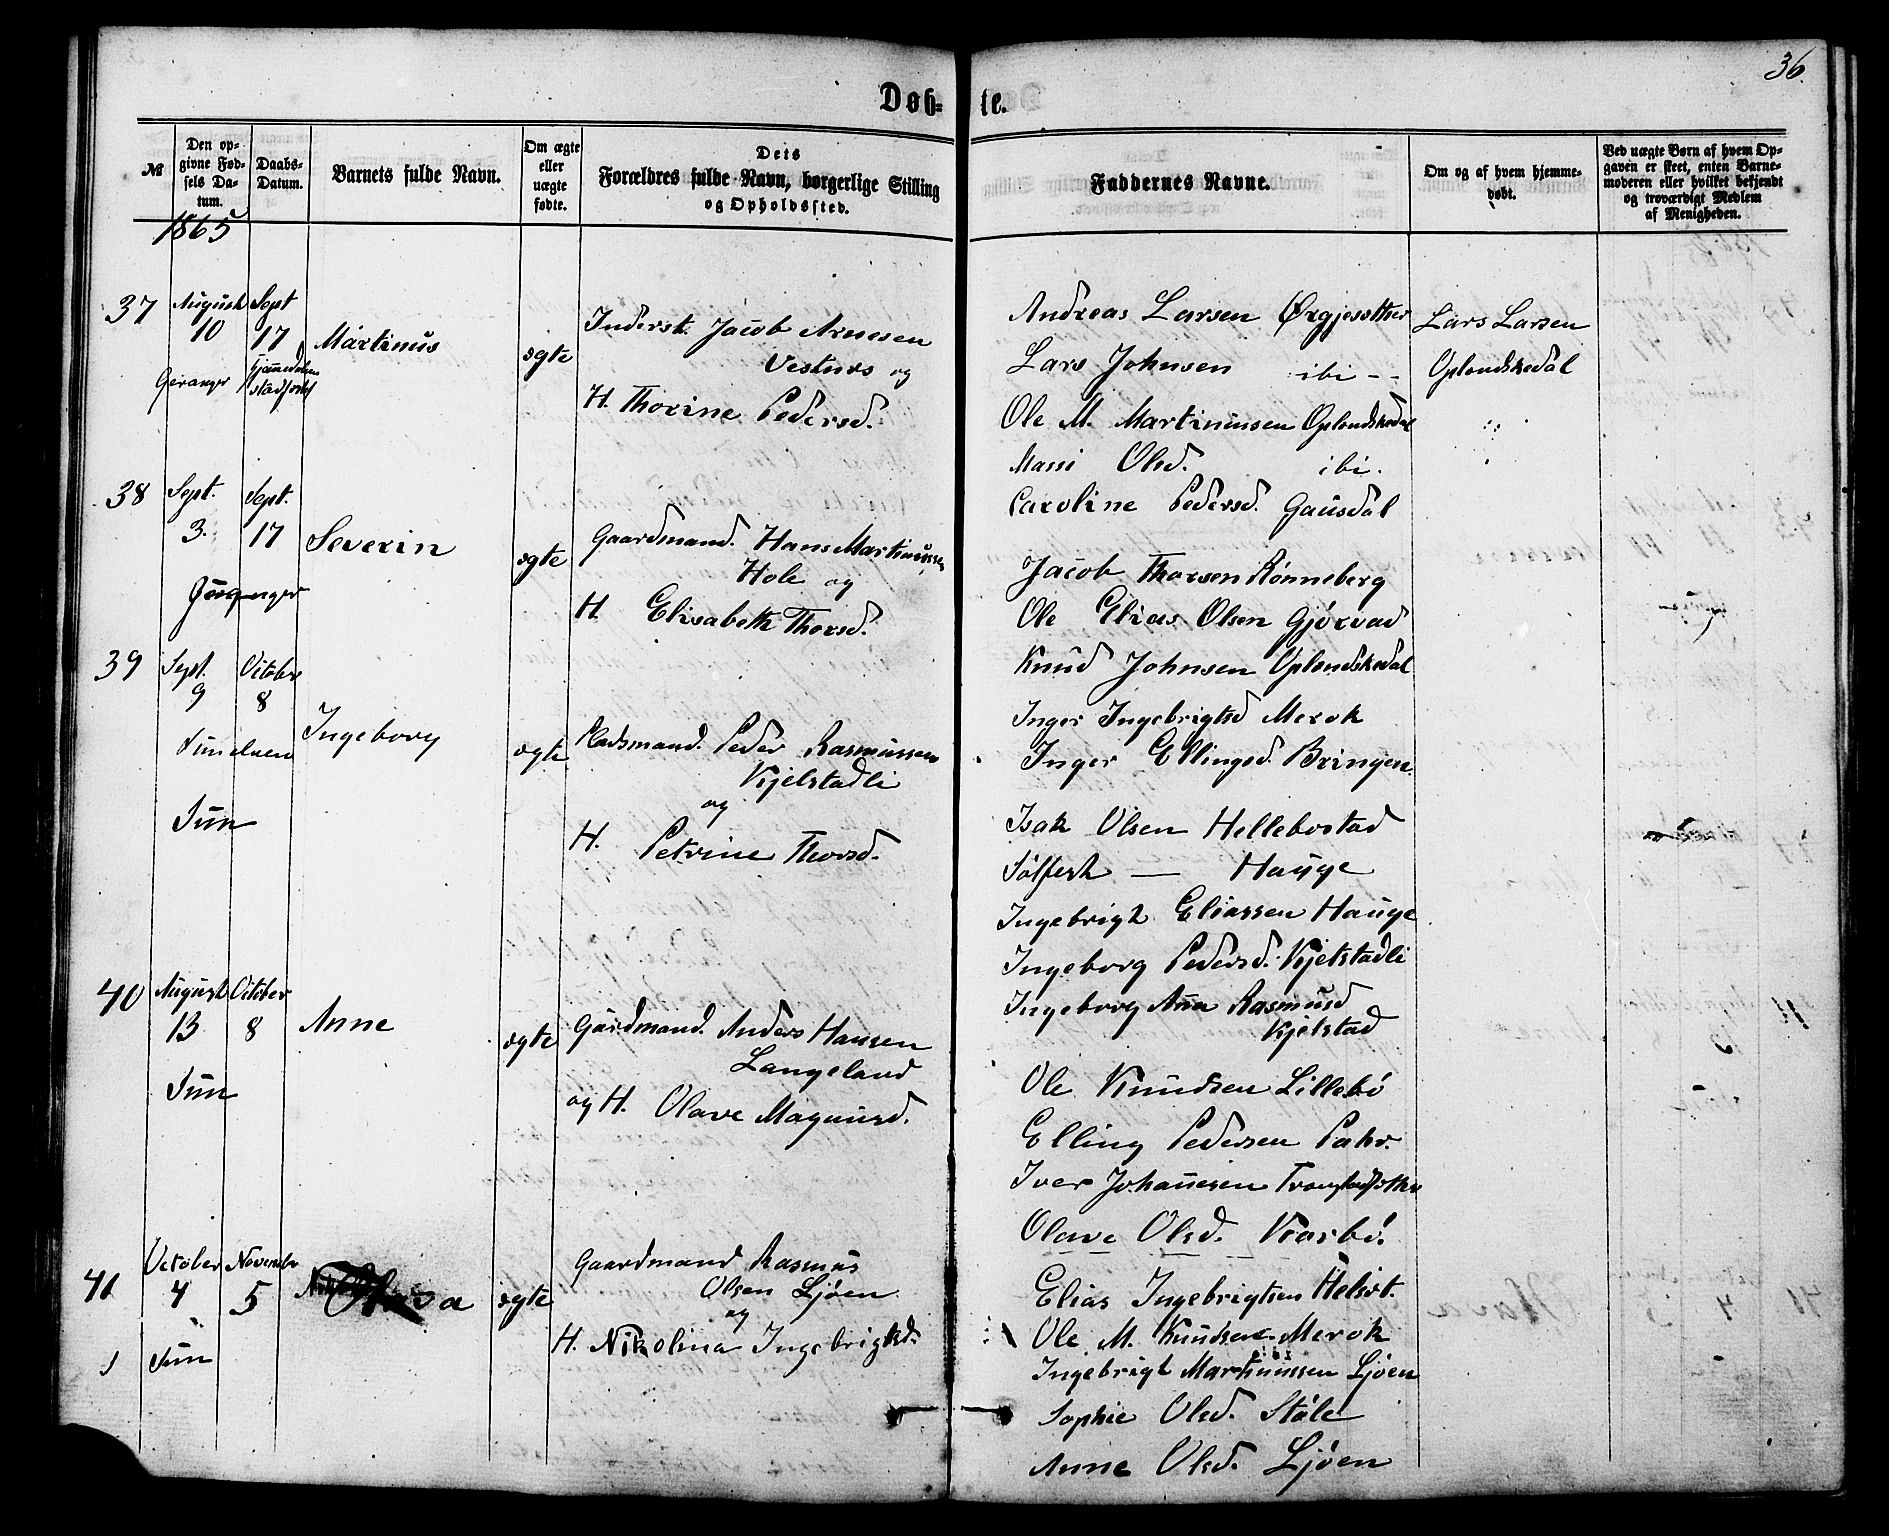 36.
Døb- te.
№
Den op-
givne Fød-
sels Da-
tum.
Daabs-
Datum.
Barnets fulde Navn.
Om ægte
eller
uægte
fødte.
Dets
Forældres fulde Navn, borgerlige Stilling
og Opholdssted.
Faddernes Navne.
Om og af hvem hjemme-
døbt.
Ved uægte Børn af hvem Op-
gaven er skeet, enten Barne-
moderen eller hvilket bekjendt
og troværdigt Medlem
af Menigheden.
1865
37 August 10 Sept 17
Geranger
Martinus
ægte
Inderst. Jacob Arnesen
Vesteraas og
H. Thorine Pedersd.
Andreas Larsen
Lars Johnsen ibi
Ole M. Martinussen Oplendskedal
Massi Olsd. ibi.
Caroline Pedersd. Gausdal
Lars Larsen
Oplendskedal
38 Sept. 3. Sept. 17
Severin
ægte
Gaardmand. Hans Martinussen
Hole og
H. Elisabeth Thorsd.
Jacob Thorsen Rønneberg
Ole Elias Olsen Gjørvad
Knud Johnsen Oplendskedal
Inger Ingebrigtsd Merok
Inger Ellingsd. Bringen.
39 Sept. 9 October 8
Sunelven
Sun
Ingeborg
ægte
Pladsmand. Peder Rasmussen
Kjelstadli
og
H. Petrine Thorsd.
Isak Olsen Hellebostad
Sølfest — Hauge
Ingebrigt Eliassen Hauge
Ingeborg Pedersd. Kjelstadli
Ingeborg Anna Rasmusd
Kjelstad
40 August 13 October 8
Sun
Anne
ægte
Gårdmand. Anders Hansen
Langeland
og H. Olave Magnusd.
Ole Knudsen Lillebø
Elling Pedersen
Iver Johannesen
Olave Olsd. Korsbø.
41 October 4 November 5
Sun
ægte
Gaardmand Rasmus
Olsen Ljøen
og
H. Nikolina Ingebrigtsd.
Elias Ingebrigtsen
Ole M. Knudsen Merok
Ingebrigt Martinussen Ljøen
Sophie Olsd. Støle
Anne Olsd. Ljøen